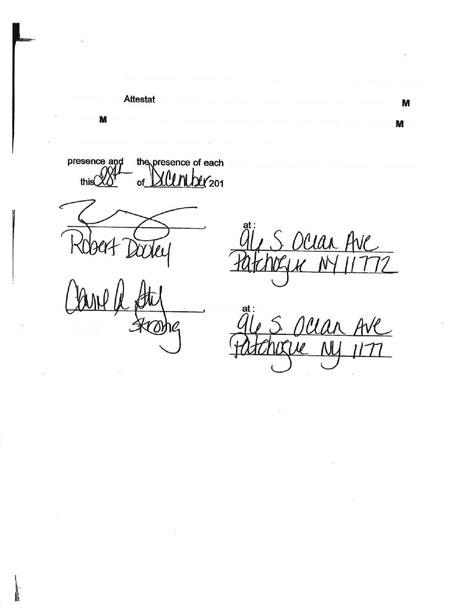 Attestat
M
M
M
presence and the presence of each
this 28th of December 201
at:
96 S Ocean Ave
Robert Dooley
Patchogue NY 11772
at:
Strong
96 S. Ocean Ave
Patchogue NY 1177